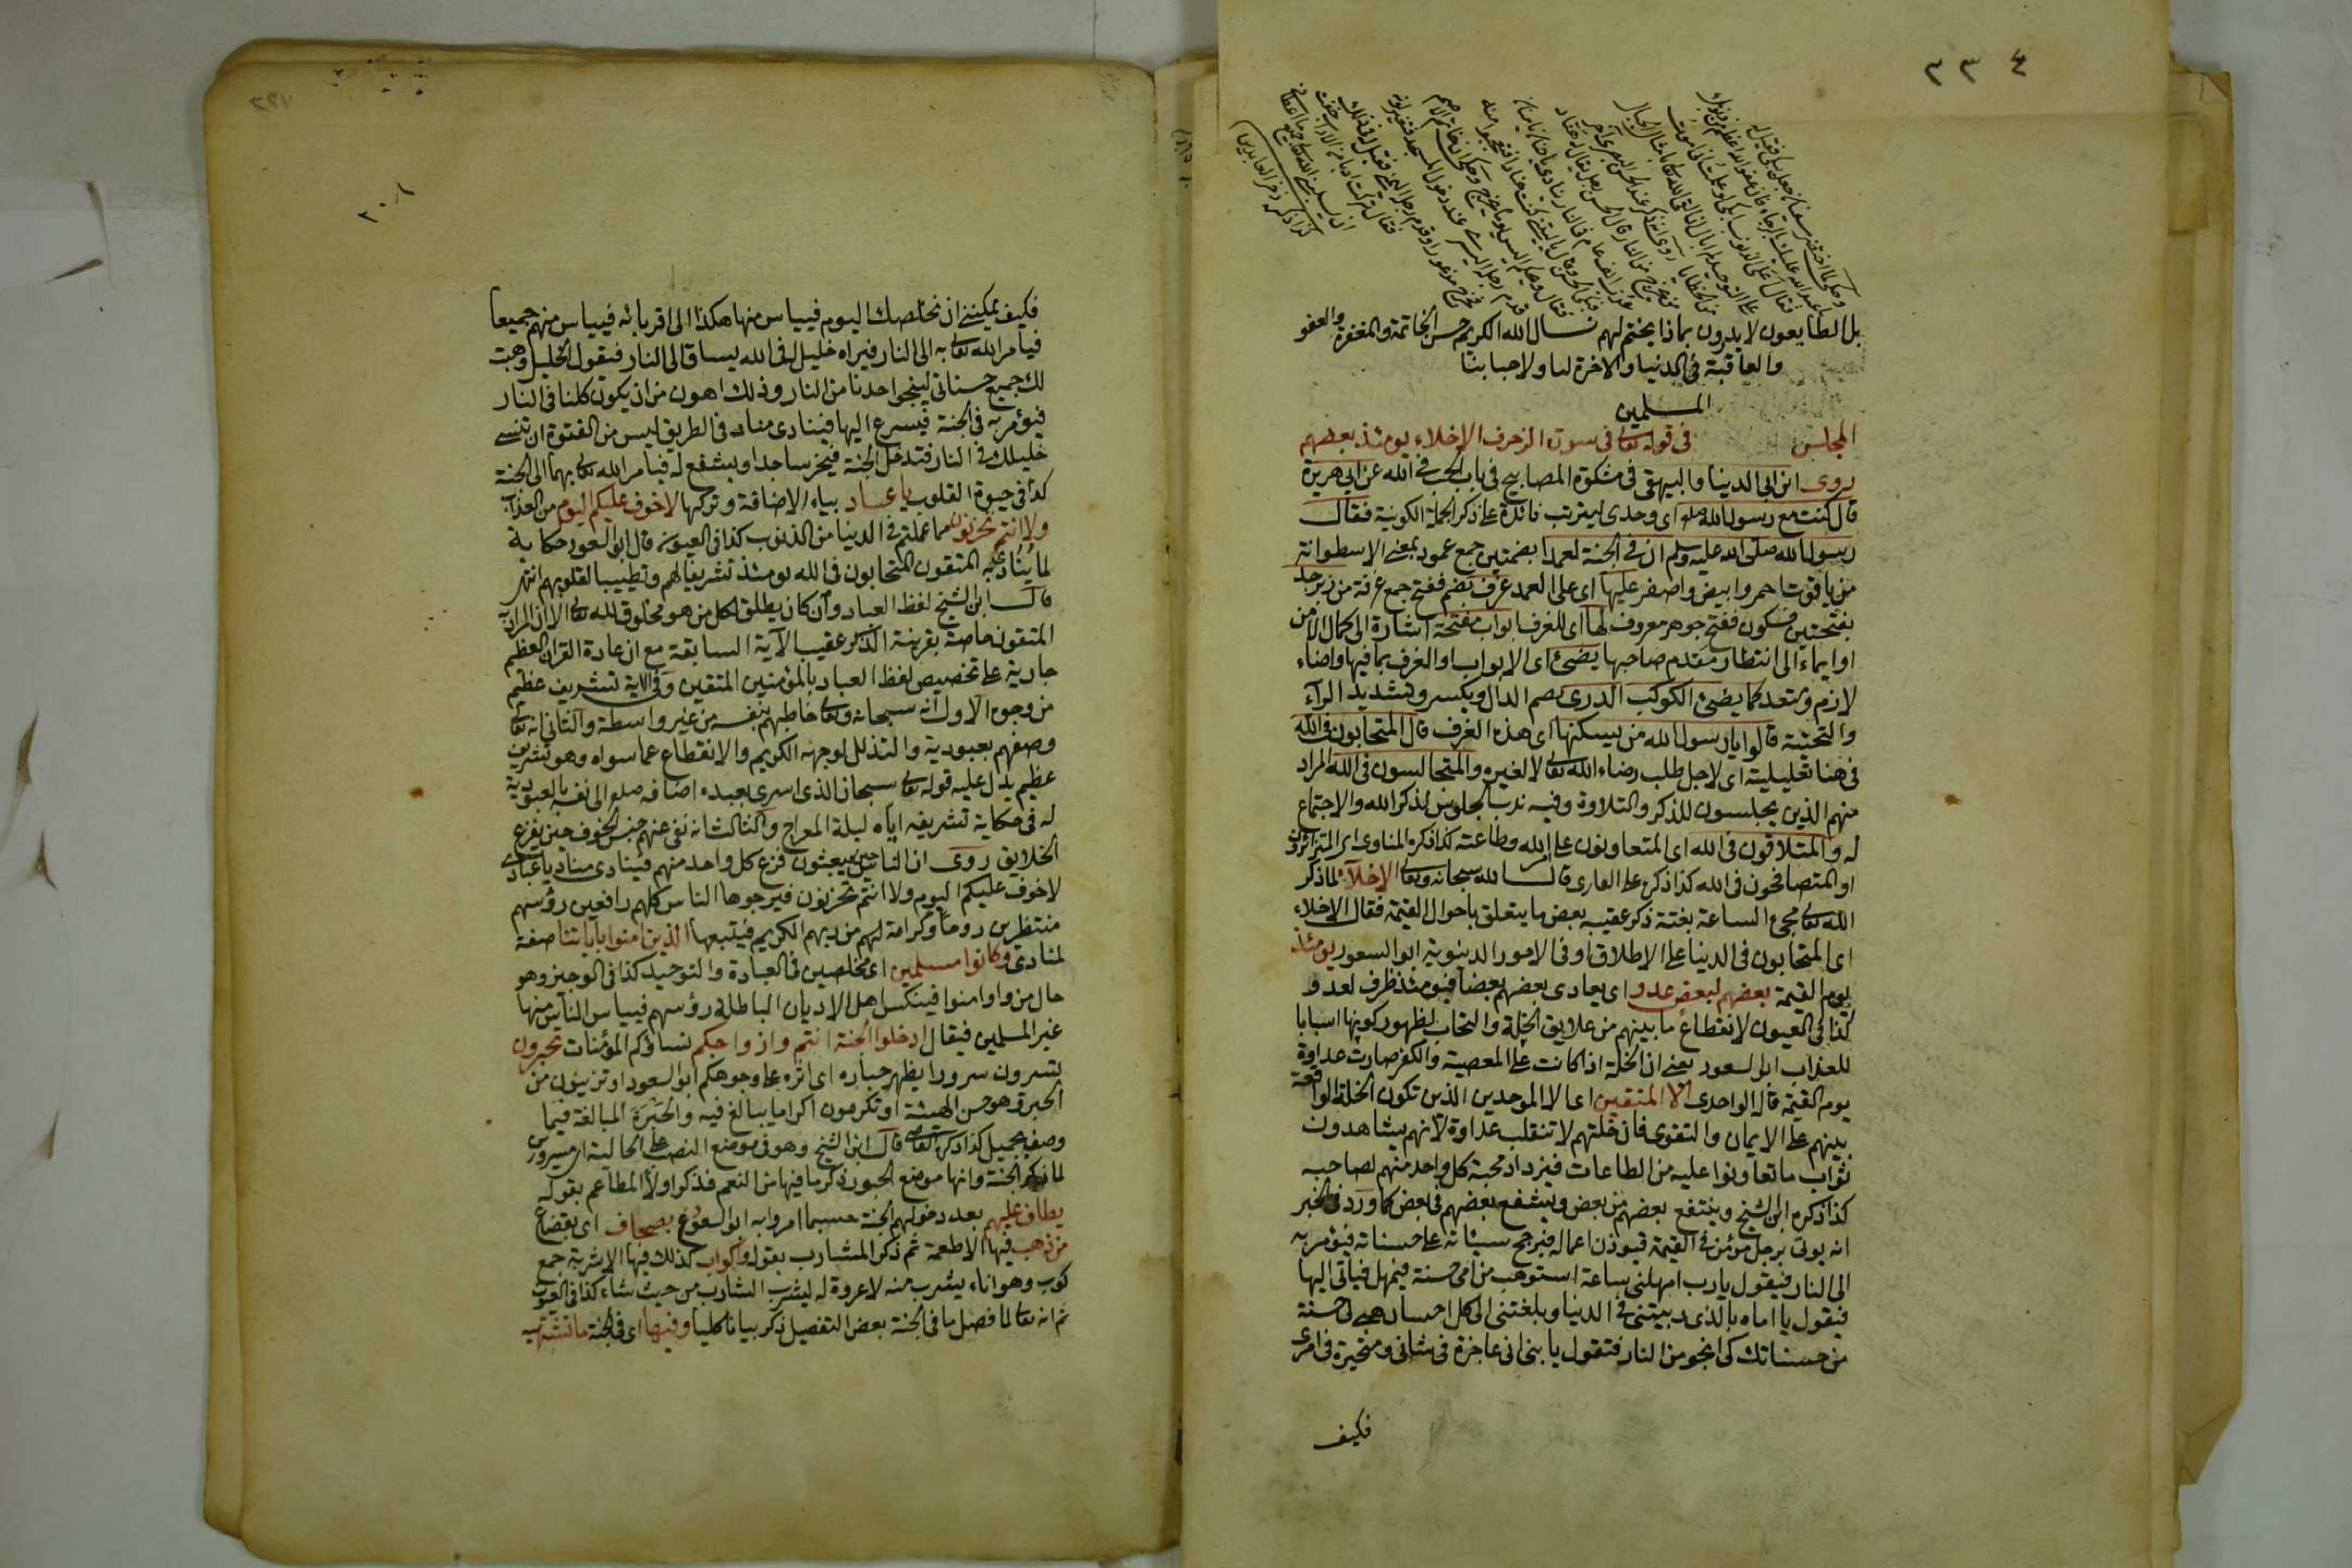 ٢٣٤
بل الطايعون لا يدرون بماذا يختم لهم نسال الله الكريم حسن الخاتمة والمغفرة والعفو
والعافية فى الدنيا والاخرة لنا ولاحبابنا
المسلمين
المجلس فى قوله تعالى فى سورة الزخرف الاخلاء يومئذ بعضهم
روى ابن ابى الدنيا والبيهقى فى مشكوة المصابيح فى باب الحب فى الله عن ابى هريرة
قال كنت مع رسول الله صلعم اى وحدى ليترتب فائدة على ذكر الجملة الكونية فقال
رسول الله صلى الله عليه وسلم ان فى الجنة لعمدا بضمتين جمع عمود بمعنى الاسطوانة
من ياقوت احمر وابيض واصفر عليها اى على العمد غرف بضم ففتح جمع غرفة من زبرجد
بفتحتين فسكون ففتح جوهر معروف لها اى للغرف ابواب مفتحة اشارة الى كمال الامن
او ايماء الى انتظار مقدم صاحبها يضئ اى الابواب او الغرف بما فيها واضاء
لازم ومتعد كما يضئ الكوكب الدرى بضم الدال ويكسر وتشديد الراء
والتحتية قالوا يا رسول الله من يسكنها اى هذه الغرف قال المتحابون فى الله
فى هنا تعليلية اى لاجل طلب رضاء الله تعالى لا لغيره والمتجالسون فى الله المراد
منهم الذين يجلسون للذكر والتلاوة وفيه ندب الجلوس لذكر الله والاجتماع
له والمتلاقون فى الله اى المتعاونون على امر الله وطاعته كذا ذكره المناوى اى المتزاورون
او المتصافحون فى الله كذا ذكره على القارى قال الله سبحانه وتعالى الاخلاء لما ذكر
الله تعالى مجئ الساعة بغتة ذكر عقيبه بعض ما يتعلق باحوال القيمة فقال الاخلاء
اى المتحابون فى الدنيا على الاطلاق او فى الامور الدنيوية ابو السعود يومئذ
يوم القيمة بعضهم لبعض عدو اى يعادى بعضهم بعضا فيومئذ ظرف لعدو
كذا فى العيون لانقطاع ما بينهم من علايق الخلة والتحاب لظهور كونها اسبابا
للعذاب ابو السعود يعنى ان الخلة اذا كانت على المعصية والكفر صارت عداوة
يوم القيمة قاله الواحدى الا المتقين اى الا الموحدين الذين تكون الخلة الواقعة
بينهم على الايمان والتقوى فان خلتهم لا تنقلب عداوة لانهم يشاهدون
ثواب ما تعاونوا عليه من الطاعات فيزداد محبة كل واحد منهم لصاحبه
كذا ذكره ابن الشيخ وينتفع بعضهم من بعض ويشفع بعضهم فى بعض كما ورد فى الخبر
انه يوتى برجل مؤمن فى القيمة فيوزن اعماله فيرجح سيئاته على حسناته فيؤمر به
الى النار فيقول يا رب امهلنى ساعة استوهب من امى حسنة فيمهل فياتى اليها
فيقول يا اماه بالذى ربيتنى فى الدنيا وبلغتنى الى كل احسان هبى لى حسنة
من حسناتك كى انجو من النار فتقول يا بنى انى عاجزة فى شانى ومتحيرة فى امرى
فكيف
٢٠٨
فكيف يمكننى ان تخلصك اليوم فيياس منها هكذا الى اقربائه فيياس منهم جميعا
فيامر الله تعالى به الى النار فيراه خليل له فى الله يساق الى النار فيقول الخليل وهبت
لك جميع حسناتى لينجو احدنا من النار وذلك اهون من ان يكون كلنا فى النار
فيؤمر به فى الجنة فيسرع اليها فينادى مناد فى الطريق ليس من الفتوة ان تنسى
خليلك فى النار فتدخل الجنة فيخر ساجدا ويشفع له فيامر الله تعالى بهما الى الجنة
كذا فى حيوة القلوب يا عباد بياء الاضافة وتركها لا خوف عليكم اليوم من العذاب
ولا انتم تحزنون مما عملتم فى الدنيا من الذنوب كذا فى العيون قال ابو السعود حكاية
لما ينادى به المتقون المتحابون فى الله يومئذ تشريفا لهم وتطييبا لقلوبهم انتهى
قال ابن الشيخ لفظ العباد وان كان يطلق لكل من هو مخلوق لله تعالى الا ان المراد به
المتقون خاصة بقرينة الذكر عقيب الآية السابقة مع ان عادة القران العظيم
جارية على تخصيص لفظ العباد بالمؤمنين المتقين وفى الاية تشريف عظيم
من وجوه الاول انه سبحانه وتعالى خاطبهم بنفسه من غير واسطة والثانى انه تعالى
وصفهم بعبودية والتذلل لوجهه الكريم والانقطاع عما سواه وهو تشريف
عظيم يدل عليه قوله تعالى سبحان الذى اسرى بعبده اضافه صلعم الى نفسه بالعبودية
له فى حكاية تشريفه اياه ليلة المعراج والثالث انه نفى عنهم جنس الخوف حين يفزع
الخلايق روى ان الناس حين يبعثون فزع كل واحد منهم فينادى مناد يا عبادى
لا خوف عليكم اليوم ولا انتم تحزنون فيرجوها الناس كلهم رافعين رؤسهم
منتظرين روحا وكرامة لهم من ربهم الكريم فيتبعها الذين امنوا باياتنا صفة
لمنادى وكانوا مسلمين اى مخلصين فى العبادة والتوحيد كذا فى الوجيز وهو
حال من واو امنوا فينكس اهل الاديان الباطلة رؤسهم فيياس الناس منها
غير المسلمين فيقال ادخلوا الجنة انتم وازواجكم نساؤكم المؤمنات تحبرون
تسرون سرورا يظهر حباره اى اثره على وجوهكم ابو السعود او تزينون من
الحبر وهو حسن الهيئة او تكرمون اكراما يبالغ فيه والحبرة المبالغة فيما
وصف بجميل كذا ذكره القاضى قال ابن الشيخ وهو فى موضع النصب على الحالية اى مسرورين
لما ذكر الجنة وانها موضع الحبور ذكر ما فيها من النعم فذكر اولا المطاعم بقوله
يطاف عليهم بعد دخولهم الجنة حسبما امروا به ابو السعود بصحاف اى بقصاع
من ذهب فيها الاطعمة ثم ذكر المشارب بقوله واكواب كذلك فيها الاشربة جمع
كوب وهو اناء يشرب منه لا عروة له ليشرب الشارب من حيث شاء كذا فى العيون
ثم انه تعالى لما فصل ما فى الجنة بعض التفصيل ذكر بيانا كليا وفيها اى فى الجنة ما تشتهيه